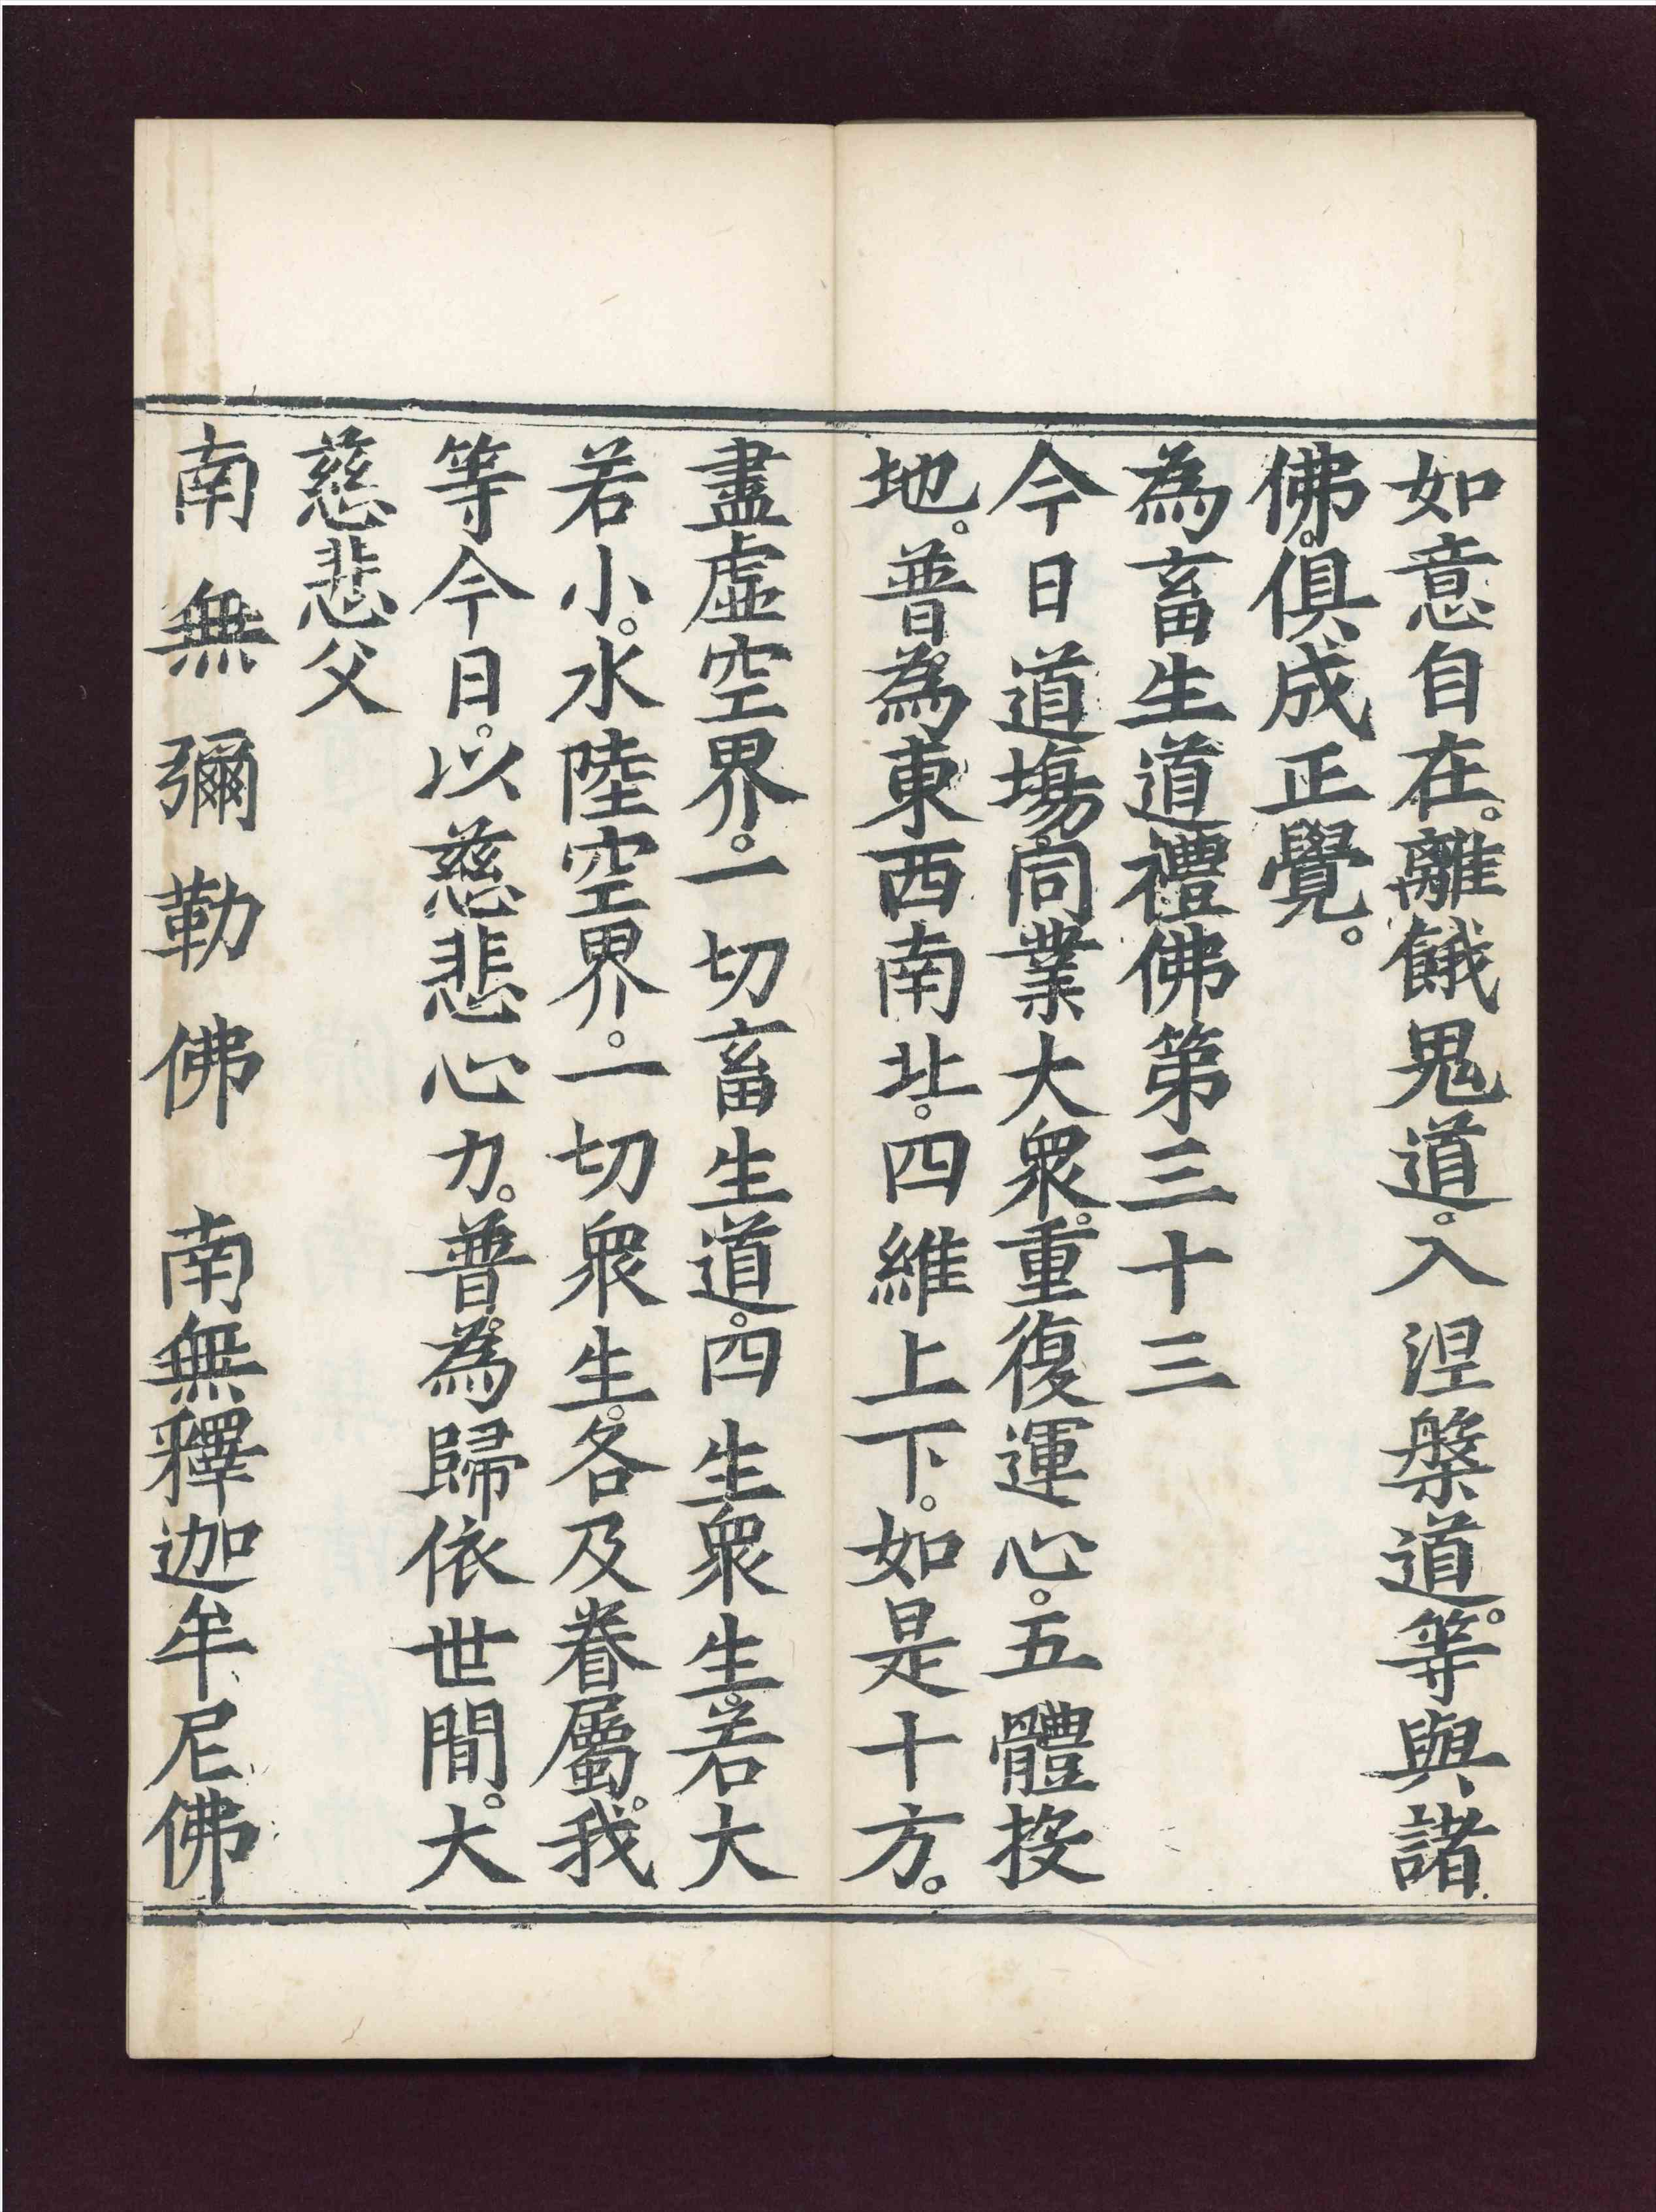 如意自在。離餓鬼道。入涅槃道。等與諸
佛。俱成正覺。
為畜生道禮佛第三十三
今日道場。同業大衆。重復運心。五體投
地。普為東西南北。四維上下。如是十方。
盡虛空界。一切畜生道。四生衆生。若大
若小。水陸空界。一切衆生。各及眷屬。我
等今日。以慈悲心力。普為歸依世間。大
慈悲父
南無彌勒佛　南無釋迦牟尼佛